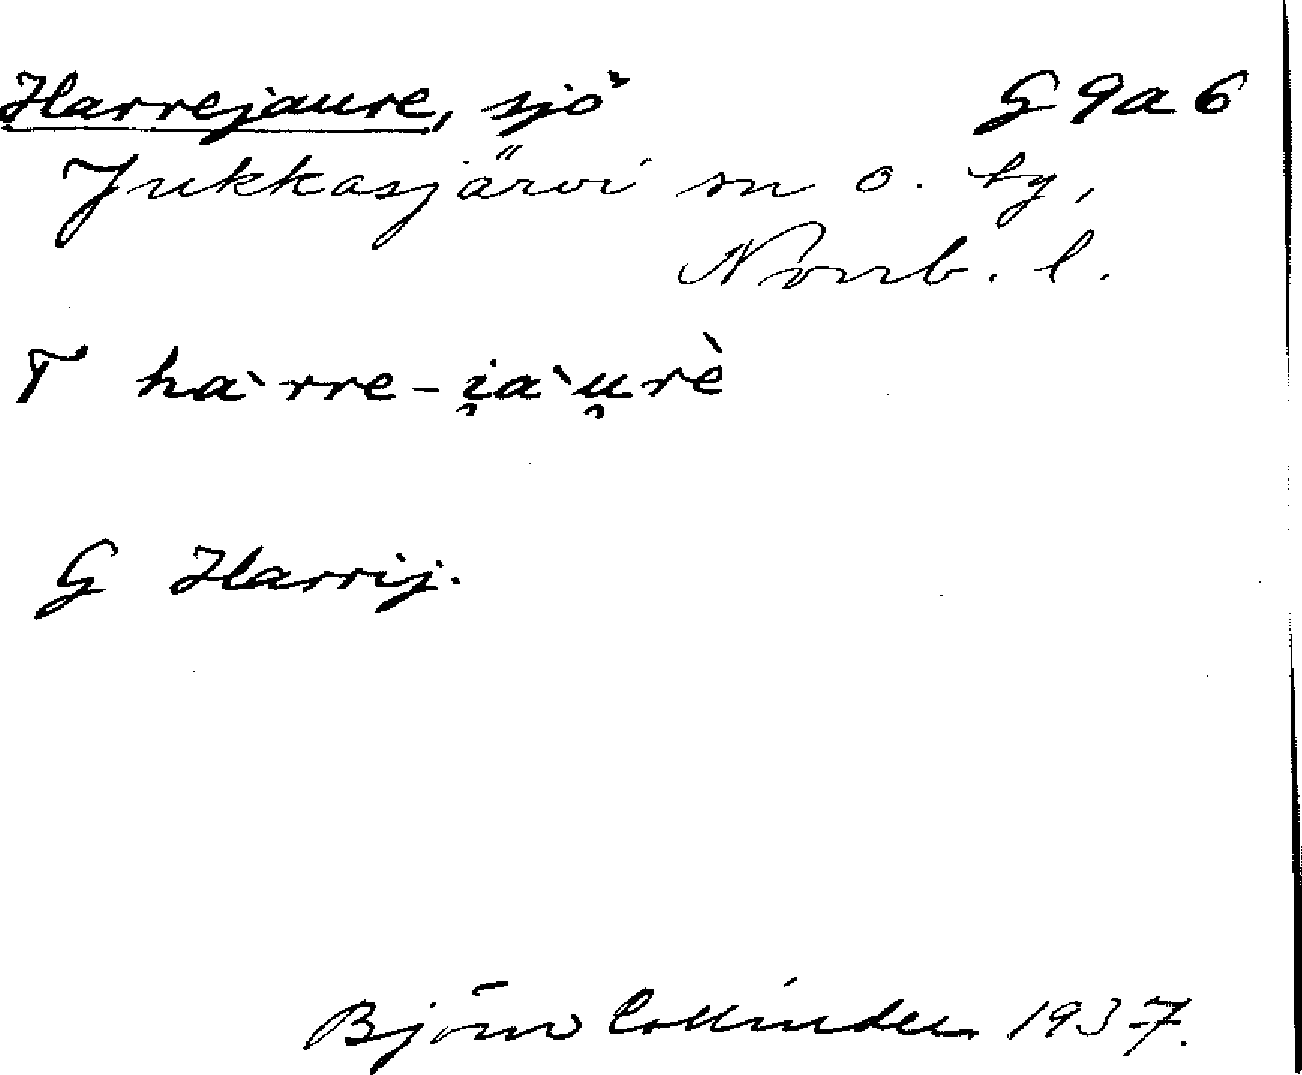 Harrejaure, sjö G 9 a 6
Jukkasjärvi sn o. tg,
Norrb. l.
T ha`rre-i̯a`u̯rè
G Harrij.
Björn Collinder 1937.